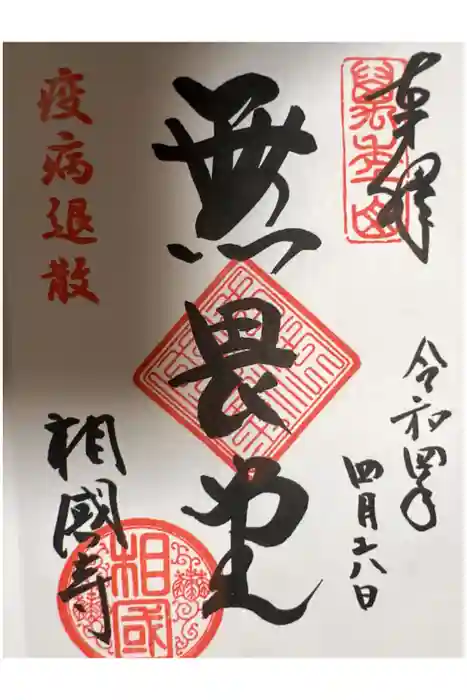 奉拝
萬年山
令和四年
四月 八日
無畏堂
疫病退散
相國寺
相國